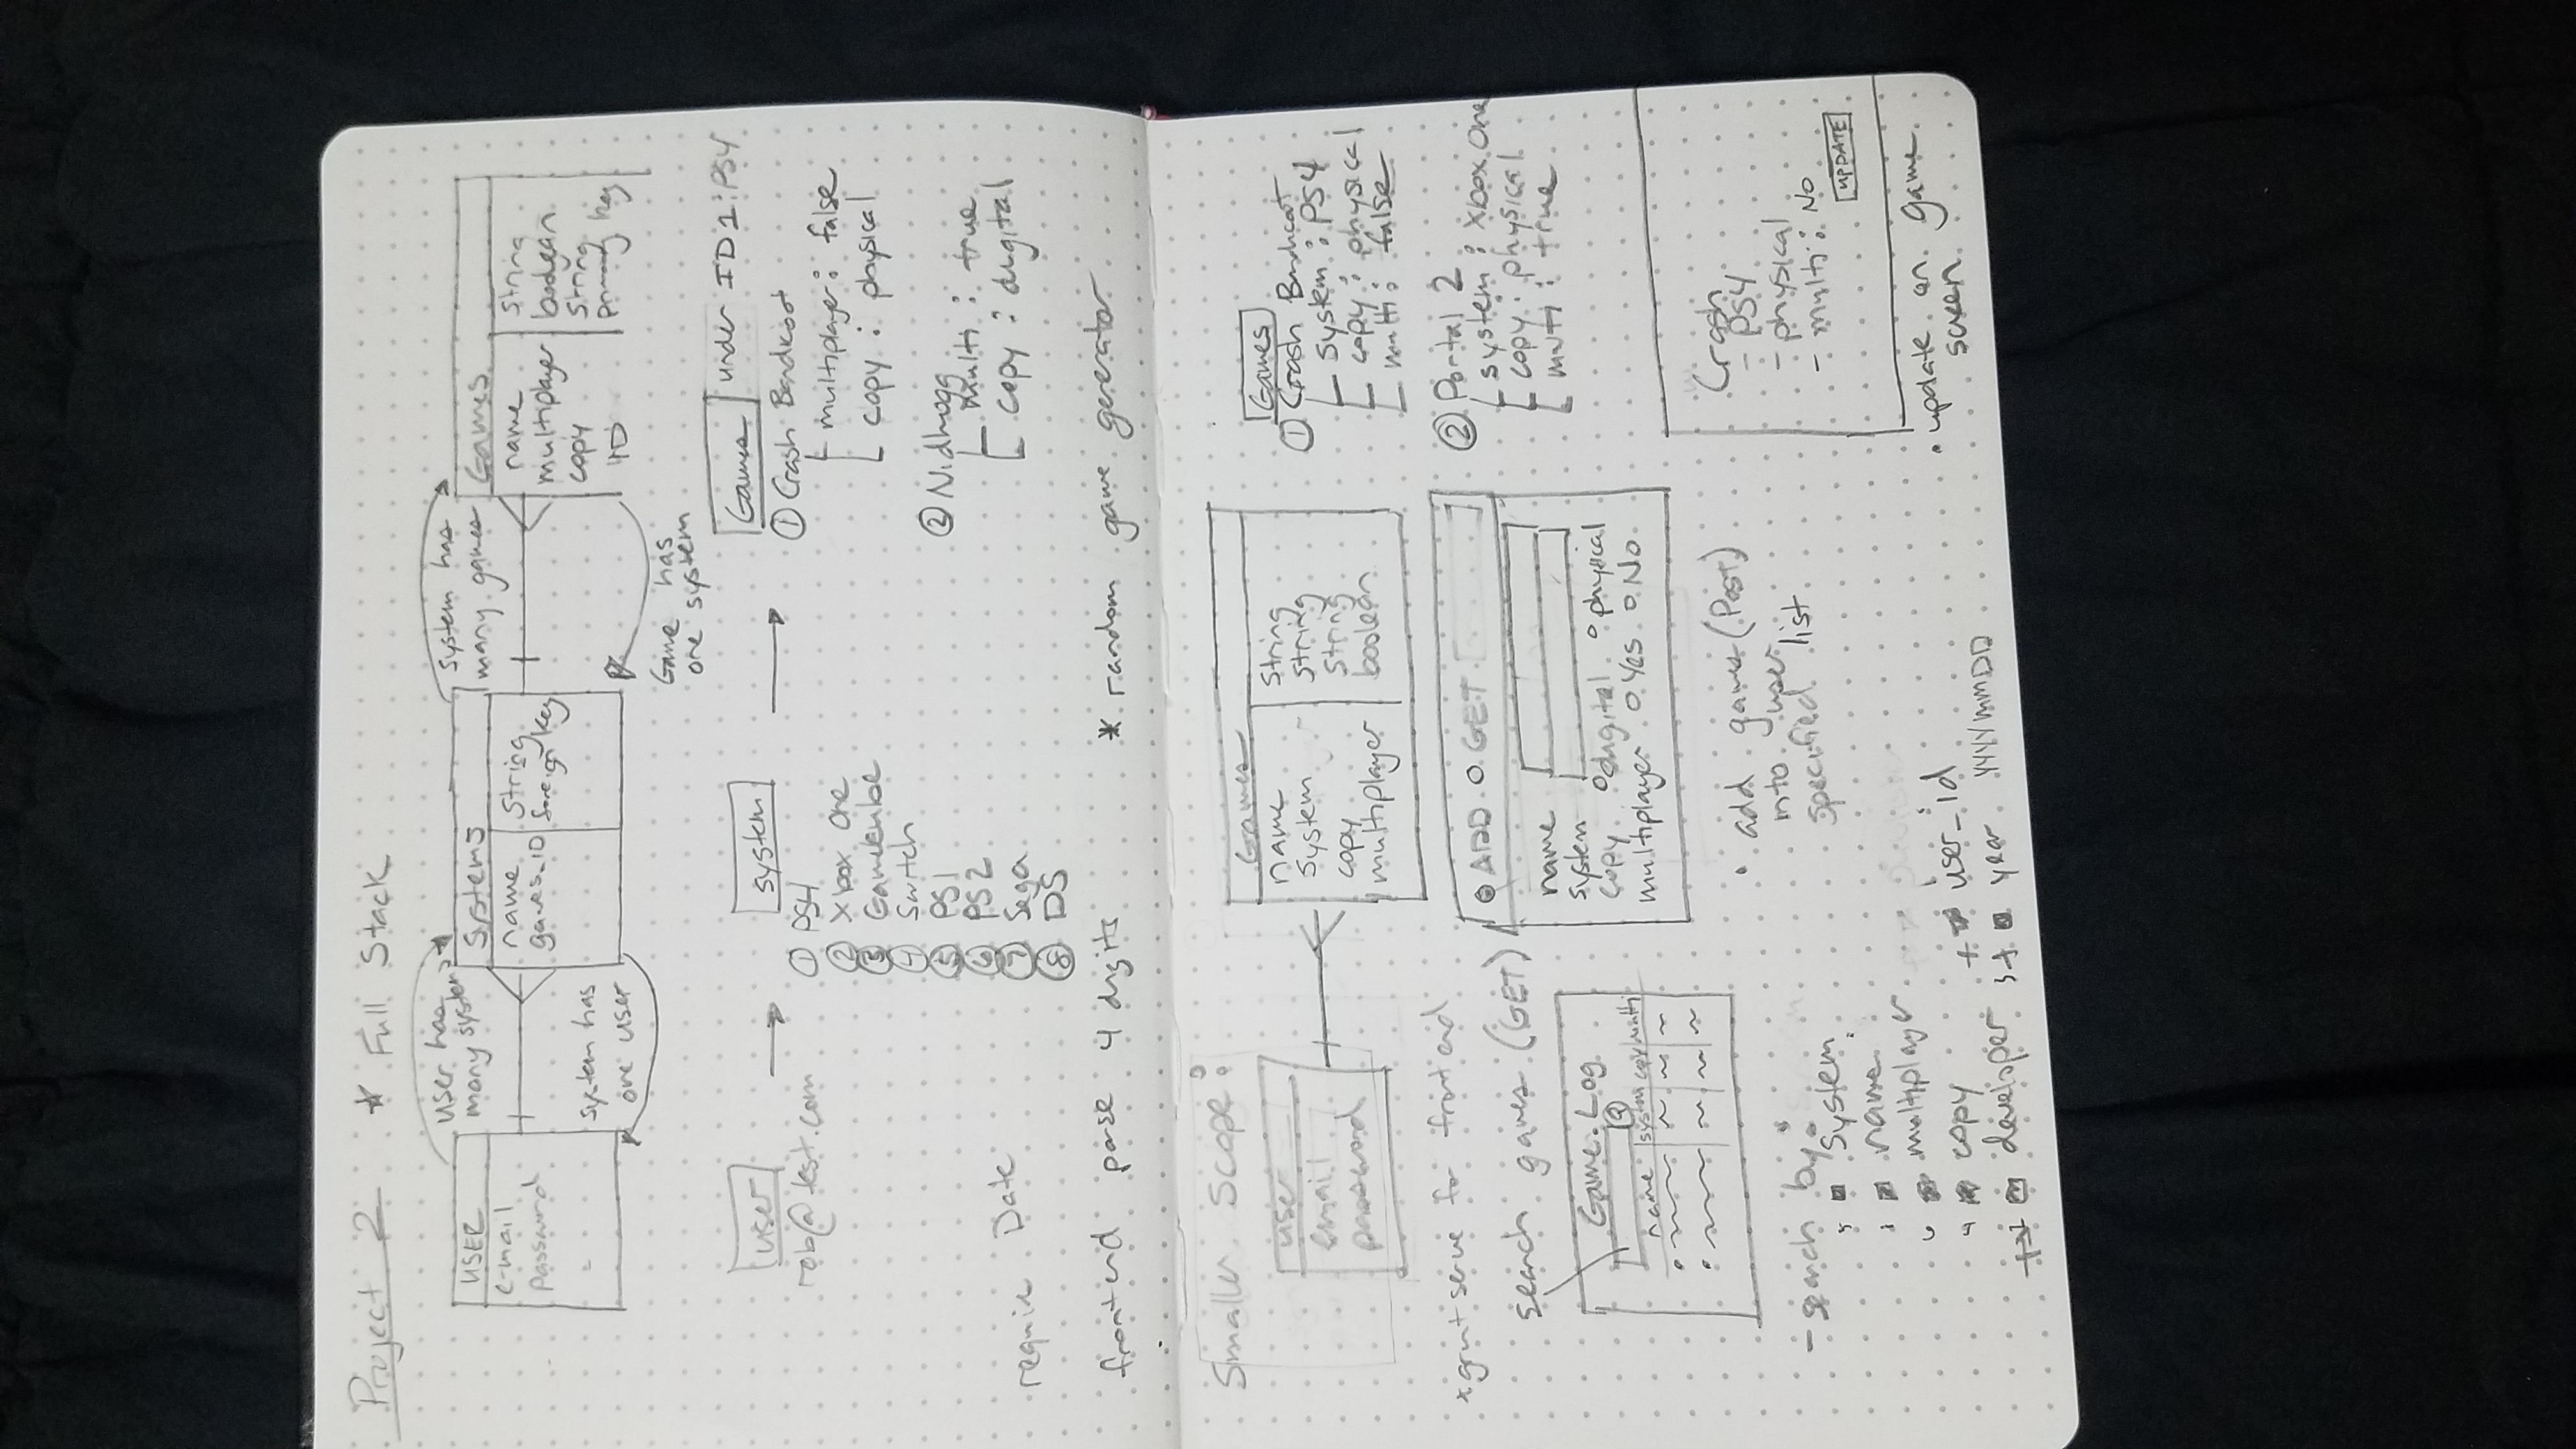 Project 2 * Full Stack
user has
many systems
system has
many games
USER
e-mail
password
system has
one user
Systems
name String
games_ID foreign key
Games
name string
multiplayer boolean
copy string
ID primary key
Game has
one system
user
rob@test.com
system
① PS4
② Xbox One
③ Gamecube
④ Switch
⑤ PS1
⑥ PS2
⑦ Sega
⑧ DS
Games under ID 1: PS4
① Crash Bandicoot
multiplayer: false
copy: physical
② Nidhogg
multi: true
copy: digital
require Date
frontend parse 4 digits
* random game generator
Smaller Scope:
user
email
password
Games
name String
System String
copy String
multiplayer boolean
Games
① Crash Bandicoot
system: PS4
copy: physical
multi: false
② Portal 2
system: Xbox One
copy: physical
multi: true
* grunt serve for frontend
search games (GET)
Game Log
name system copy multi
ADD GET
name
system
copy digital physical
multiplayer Yes No
• add games (Post)
into user
specified list
Crash
- PS4
- physical
- multi: No
UPDATE
• update on game
screen
- search by:
system
name
multiplayer
copy
developer
+ user_id
+ year YYYYMMDD